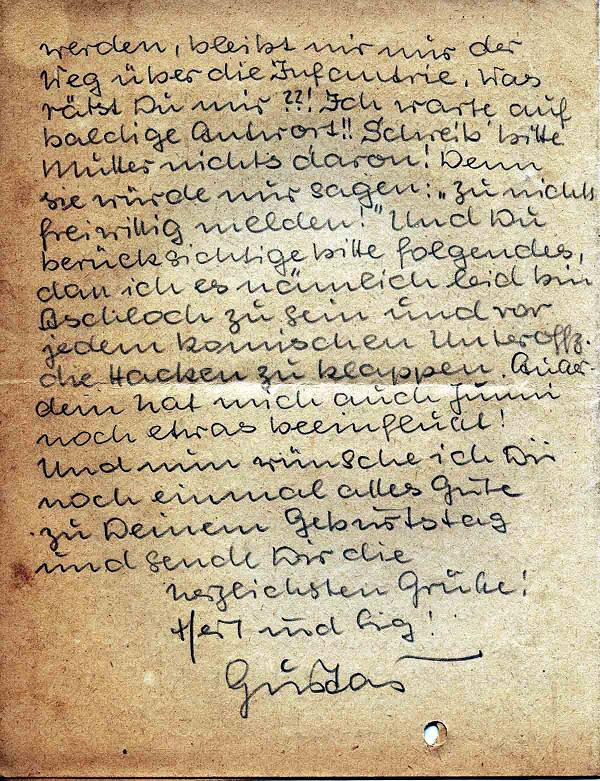 werden, bleibt mir nur der
Weg über die Infantrie. Was
rätst Du mir ??! Ich warte auf
baldige Antwort!! Schreib' bitte
Mutter nichts davon! Denn
sie würde nur sagen: „Zu nichts
freiwillig melden!" Und Du
berücksichtige bitte folgendes,
daß ich es nämlich leid bin
Aschloch zu sein und vor
jedem komischen Unteroffz.
die Hacken zu klappen. Außer-
dem hat mich auch
noch etwas beeinflußt!
Und nun wünsche ich Dir
noch einmal alles Gute
zu Deinem Geburtstag
und sende Dir die
herzlichsten Grüße!
und Sieg!
Gustav